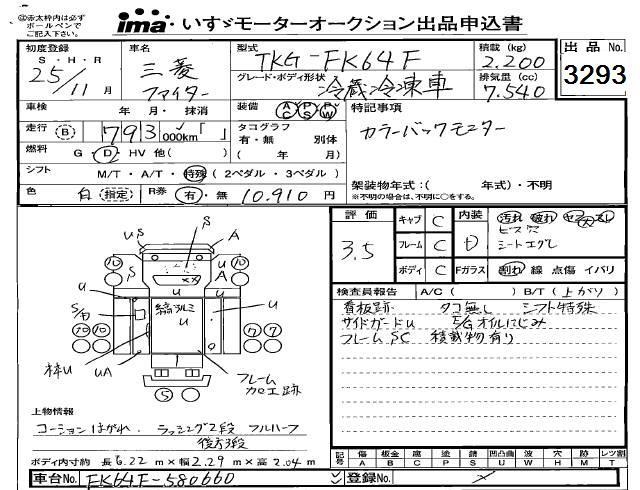 ①赤太枠内は必ず
ボールペンで
ご記入下さい。
ima いすゞモーターオークション出品申込書
初度登録
S・H・R
25/11月
車名
三菱
ファイター
型式
TKG-FK64F
グレード・ボディ形状
冷蔵冷凍車
積載(kg)
2.200
排気量(cc)
7.540
出品No.
3293
車検 年 月・抹消
走行 (B) 793,000km「 」
燃料 G・D・HV 他( )
シフト M/T・A/T・特殊(2ペダル・3ペダル)
色 白 (指定) R券 有・無 10.910円
装備 AC PS PW
タコグラフ
有・無 別体
( 年 月)
特記事項
カラーバックモニター
架装物年式:( 年式)・不明
※不明の場合は、不明に○をする。
評価
3.5
キャブ C
フレーム C
ボディ C
内装 D
汚れ 破れ ヤブレ大 スレ
ビス穴
シートエグレ
Fガラス 割れ 線 点傷 イバリ
検査員報告 A/C( ) B/T(上がり)
看板跡 タコ無し シフト特殊
サイドガードU E/Gオイルにじみ
フレームSC 積載物有り
S
US
A
U
A
U
U
縞アルミ
U
U
S/B
U
枠U
UA
フレーム
カロエ跡
10
10
10 10
7 7
5
上物情報
コーションはがれ. ラッシング2段 フルハーフ
後方3段
ボディ内寸約 長6.22m×幅2.29m×高2.04m
車台No. FK64F-580660
登録No.
記号 傷 A 板金 B 腐 C 塗 P 錆 S 凹凸曲 U 波 W 穴 H 跡 M レツ割 T